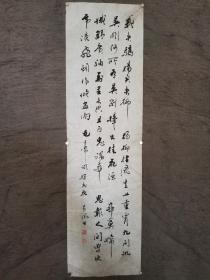 我失骄杨君失柳 杨柳轻飏直上重霄九 问讯
吴刚何所有 吴刚捧出桂花酒 寂寞嫦
娥舒广袖 万里长空且为忠魂舞 忽报人间曾伏
虎 泪飞顿作倾盆雨